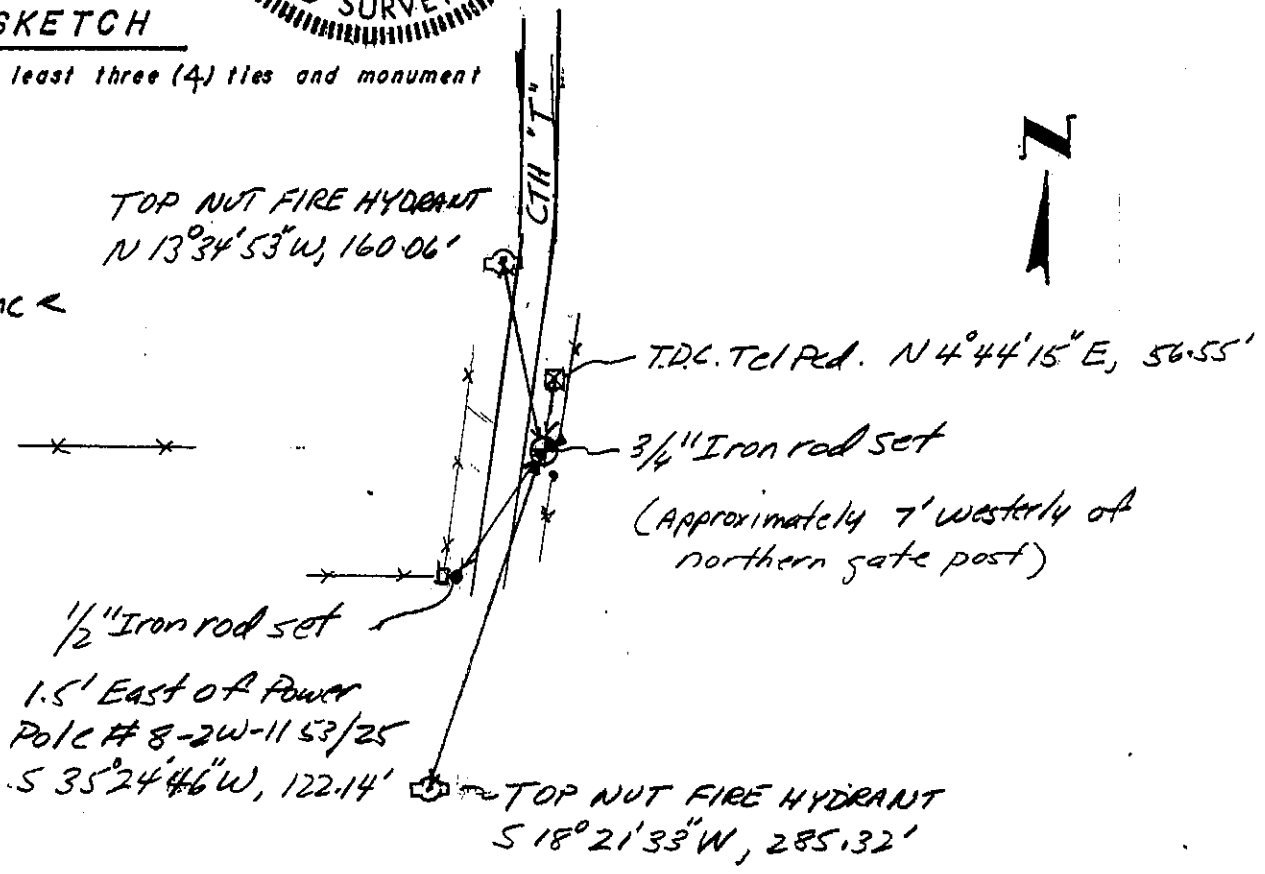 SURVEY
SKETCH
least three (4) ties and monument
CTH "T"
N
TOP NUT FIRE HYDRANT
N 13°34'53"W, 160.06'
T.D.C. Tel Ped. N 4°44'15"E, 56.55'
3/4" Iron rod set
(Approximately 7' westerly of
northern gate post)
1/2" Iron rod set
1.5' East of Power
Pole # 8-2W-11 53/25
S 35°24'46"W, 122.14'
TOP NUT FIRE HYDRANT
S 18°21'33"W, 285.32'